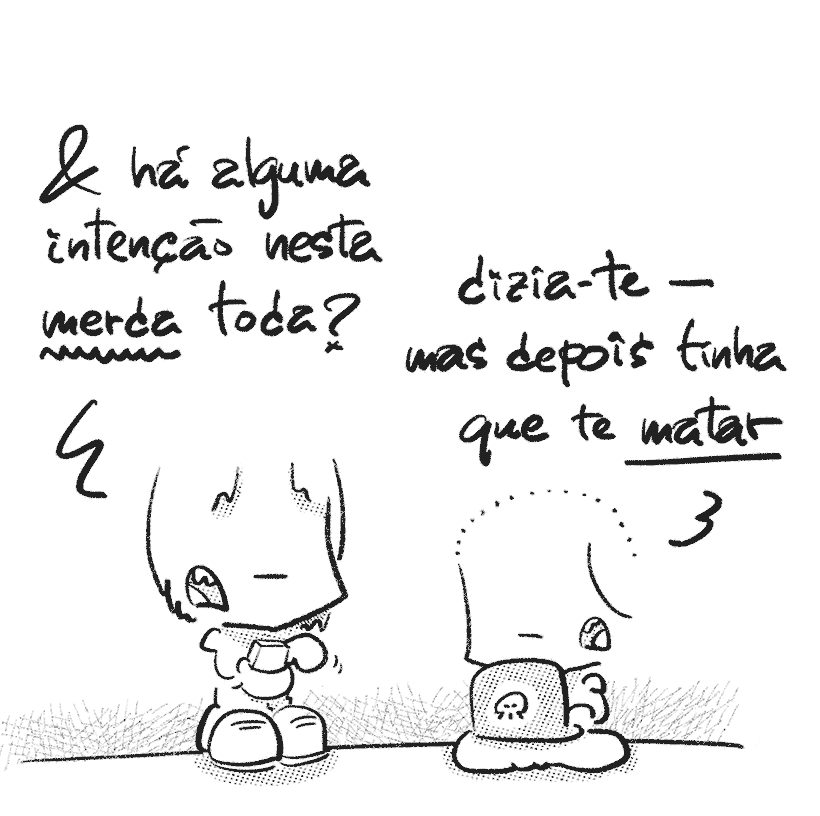 & há alguma
intenção nesta
merda toda?
dizia-te —
mas depois tinha
que te matar